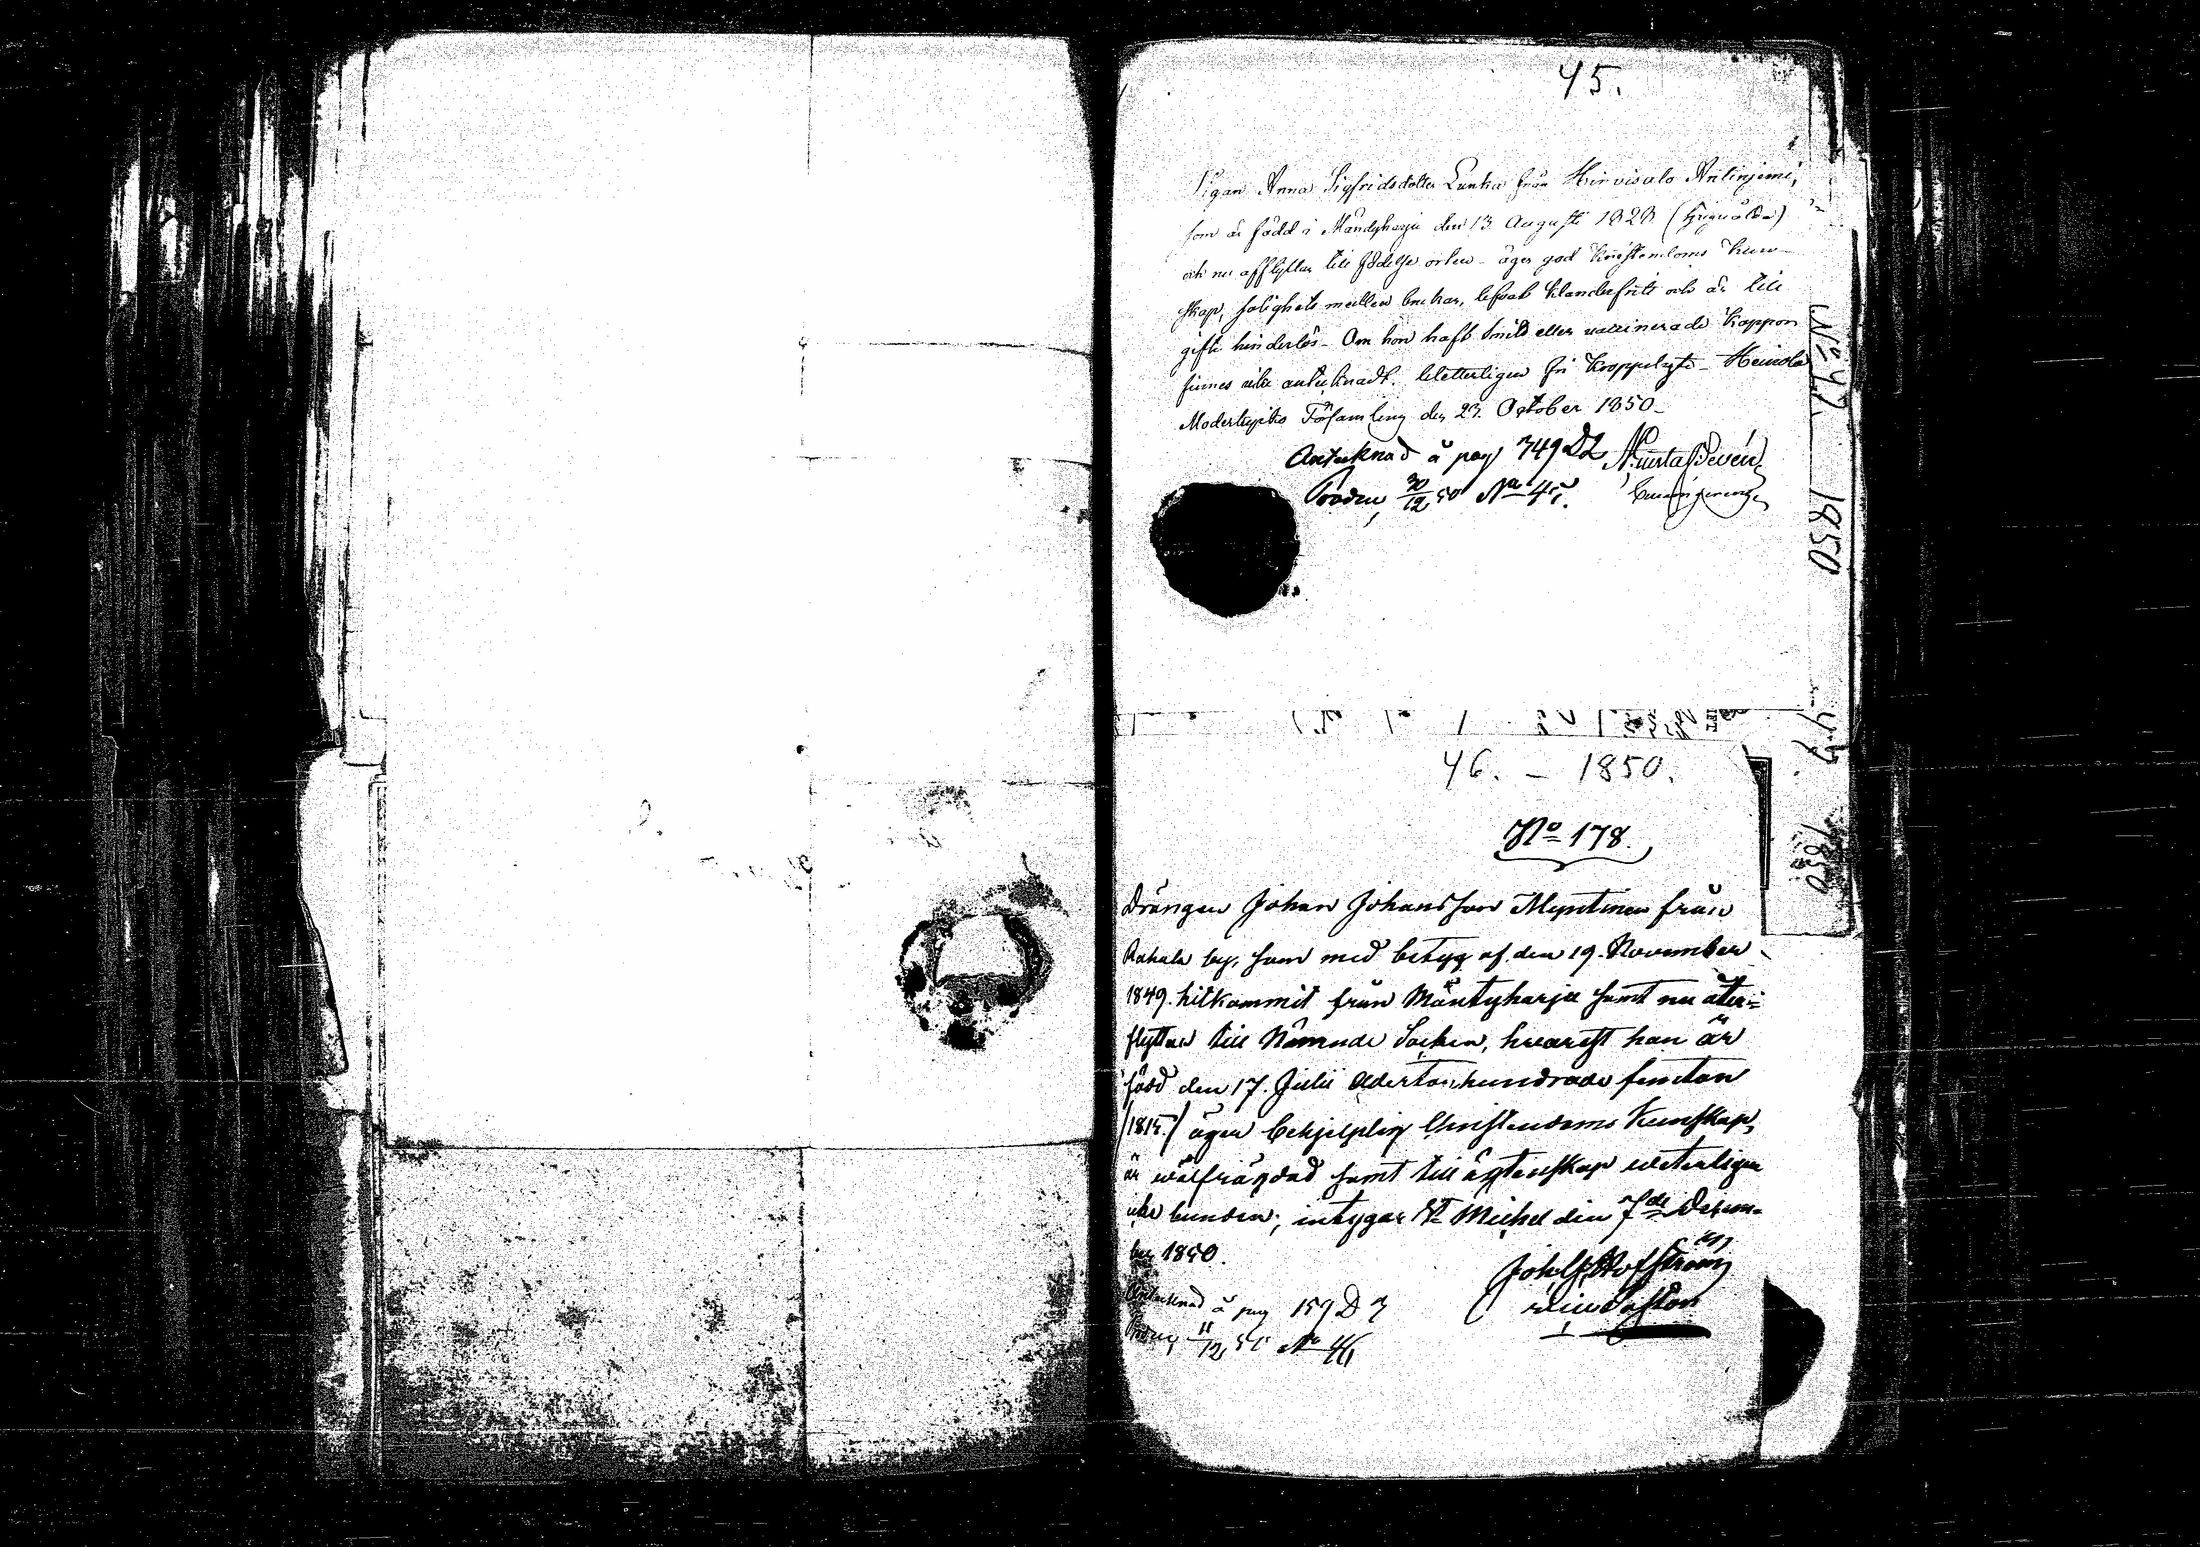 45.
Pigan Anna Sigfridsdotter Lunka från Hirvisalo Anlinjemi,
som är född i Mändyharju den 13 Augusti 1828
och nu afflyttar till födelse orten – äger god Christendoms kun-
skap, salighets medlen brukar, lefvat klanderfritt och är till
gifte hinderlös – Om hon haft små eller vaccinerade koppor
finnes icke antecknadt. Veterligen fri kroppslyte – Heinola
Moderkyrko Församling den 23. October 1850 –
Antecknad å pag 749 D2
30/12 50 No 45.
No 47. 1850
47. 1850
46. – 1850.
No 178.
Drängen Johan Johansson Myntinen från
Rahula by, som med betyg af den 19. November
1849. hitkommit från Mäntyharju samt nu åter-
flyttar till Nämnde Socken, hvarest han är
född den 17. Julii Adertonhundrade femton
/1815/ äger behjelplig Christendoms Kunskap,
är wälfrägdad samt till ägtenskap weterligen
icke bunden; intygar St Michel den 7de Decem-
ber 1850.
Antecknad å pag 157 D 7
11/12 No 46